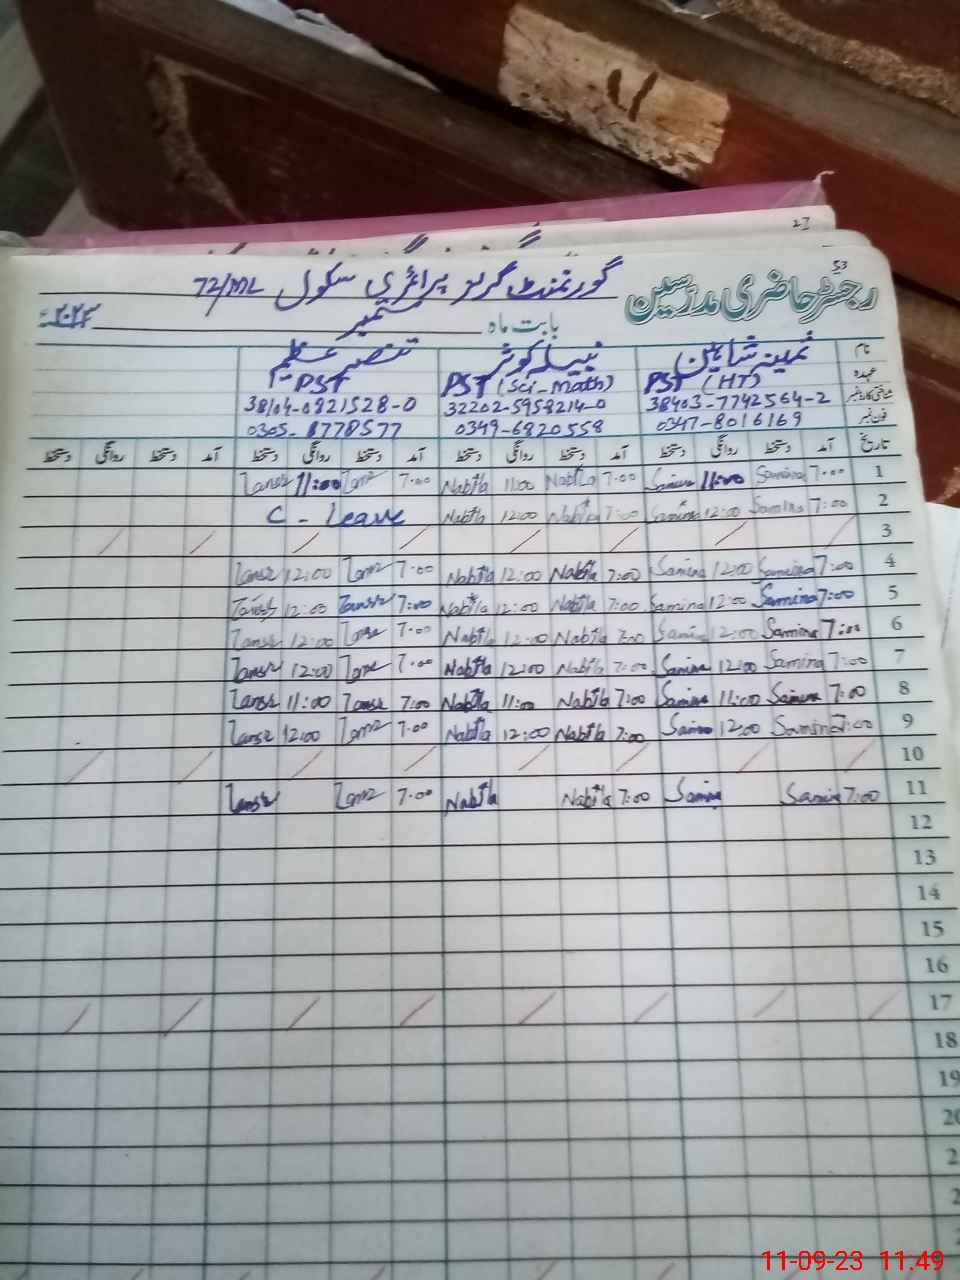 23
53
رجسٹر حاضری مدرسین گورنمنٹ گرلز پرائمری سکول 72/ML
بابت ماہ ستمبر
نام ثمینہ شاہین نبیلہ کوثر تنصیر عظیم
عہدہ PST (HT) PST (Sci-Math) PST
شناختی کارڈ نمبر 38403-7742564-2 32202-5958214-0 38104-0821528-0
فون نمبر 0347-8016169 0349-6820558 0305-8778577
تاریخ آمد دستخط روانگی دستخط آمد دستخط روانگی دستخط آمد دستخط روانگی دستخط آمد دستخط روانگی دستخط
1 7:00 Samina 11:00 Samina 7:00 Nabila 11:00 Nabila 7:00 11:00
2 7:00 Samina 12:00 Samina 7:00 Nabila 12:00 Nabila C - Leave
3
4 7:00 Samina 12:00 Samina 7:00 Nabila 12:00 Nabila 7:00 12:00
5 7:00 Samina 12:00 Samina 7:00 Nabila 12:00 Nabila 7:00 12:00
6 7:00 Samina 12:00 Samina 7:00 Nabila 12:00 Nabila 7:00 12:00
7 7:00 Samina 12:00 Samina 7:00 Nabila 12:00 Nabila 7:00 12:00
8 7:00 Samina 11:00 Samina 7:00 Nabila 11:00 Nabila 7:00 11:00
9 7:00 Samina 12:00 Samina 7:00 Nabila 12:00 Nabila 7:00 12:00
10
11 7:00 Samina Samina 7:00 Nabila Nabila 7:00
12
13
14
15
16
17
18
19
20
11-09-23 11.49